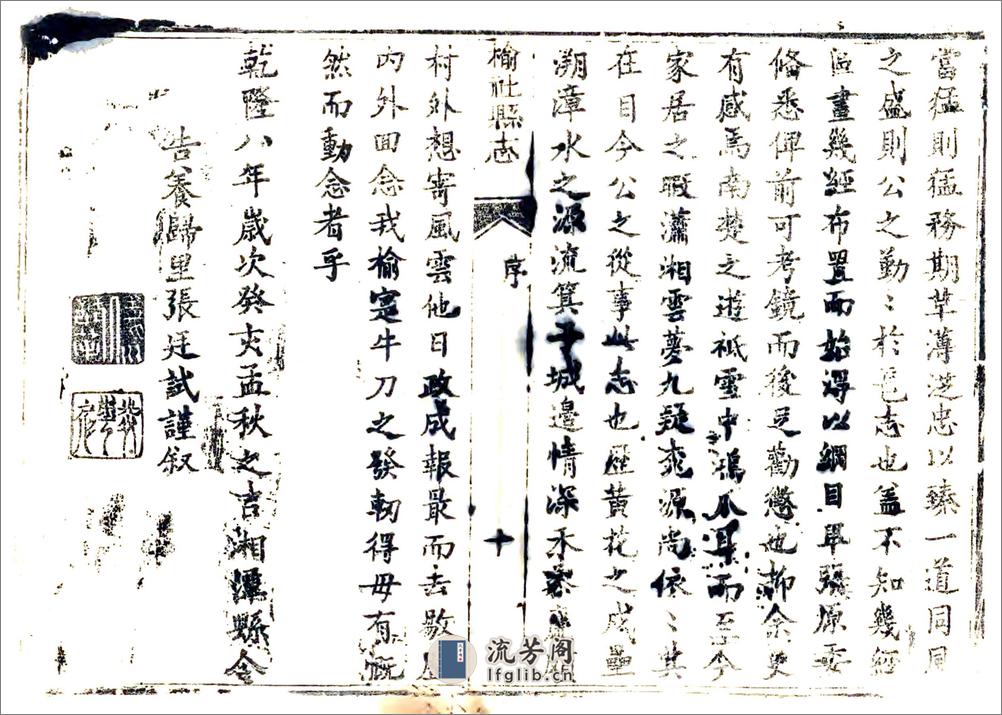 當猛則猛務期革薄從忠以臻一道同風
之盛則公之勤〻於邑志也蓋不知幾經
區畫幾經布置而始得以綱目畢張原委
俻悉俾前可考鏡而後足勸懲也抑余更
有感焉南楚之遊祇雪中鴻爪耳而至今
家居之暇瀟湘雲夢九疑桃源尚依〻其
在目今公之從事此志也歷黄花之戍壘
溯漳水之源流箕子城邊情深禾黍
榆社縣志
序
十
村外想寄風雲他日政成報最而去敭
内外回念我榆寔牛刀之發軔得毋有慨
然而動念者乎
乾隆八年歲次癸亥孟秋之吉湘潭縣令
告養歸里張廷試謹叙
流芳阁
lfglib.cn